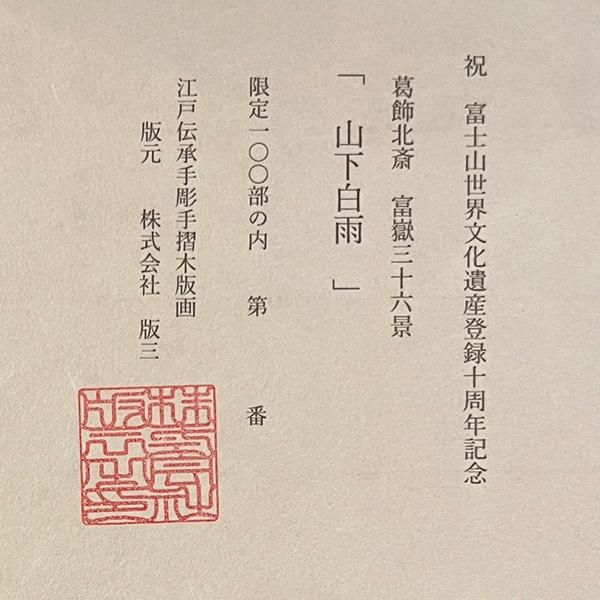 祝 富士山世界文化遺産登録十周年記念
葛飾北斎 富嶽三十六景
「山下白雨」
限定一〇〇部の内 第 番
江戸伝承手彫手摺木版画
版元 株式会社 版三
株式会社
版三之印